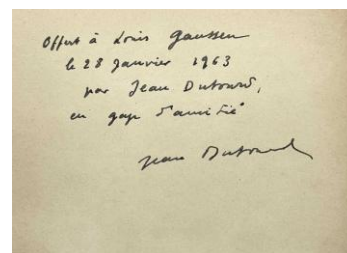 Offert à Louis Gaussen
le 28 Janvier 1963
par Jean Dutourd,
en gage d'amitié
Jean Dutourd